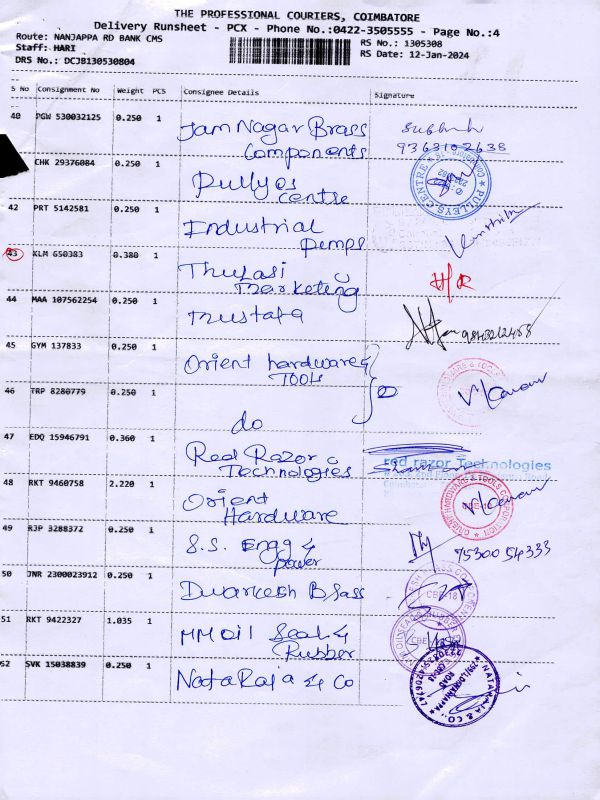 THE PROFESSIONAL COURIERS, COIMBATORE
Delivery Runsheet - PCX - Phone No.:0422-3505555 - Page No.:4
Route: NANJAPPA RD BANK CMS
RS No.: 1305308
Staff: HARI
RS Date: 12-Jan-2024
DRS No.: DCJB130530804
S No Consignment No Weight PCS Consignee Details Signature
40 PGW 530032125 0.250 1 Jam Nagar Brass
Components
9363102638
CHK 29376084 0.250 1 Pullyes
Centre
PULLEYS CENTRE
42 PRT 5142581 0.250 1 Industrial
Pumps
43 KLM 650383 0.380 1 Thulasi
Marketing
44 MAA 107562254 0.250 1 Mustafa
9843212458
45 GYM 137833 0.250 1 Orient hardware &
TOOLS
46 TRP 8280779 0.250 1
do
47 EDQ 15946791 0.360 1 Red Razor
Technologies
red razor Technologies
48 RKT 9460758 2.220 1 Orient
Hardware
ORIENT HARDWARE & TOOLS CORPORATION
49 RJP 3288372 0.250 1 S.S. Engg &
Power
75300 54333
50 JNR 2300023912 0.250 1 Dwarkesh Brass
CBE-18
51 RKT 9422327 1.035 1 MM Oil Seal &
Rubber
52 SVK 15038839 0.250 1 NataRaja & Co
NATARAJA & CO